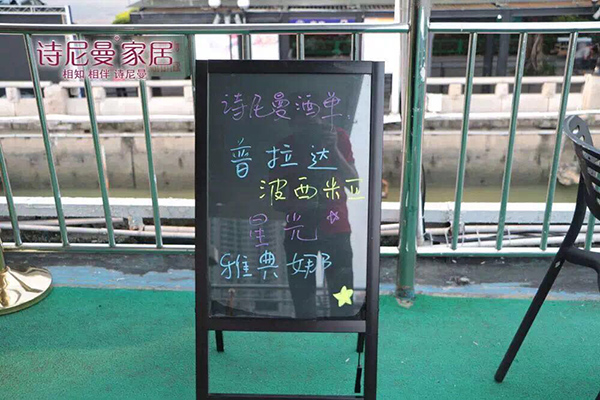 诗尼曼®家居
相知 相伴 诗尼曼
诗尼曼酒单
普拉达
波西米亚
星光
雅典娜